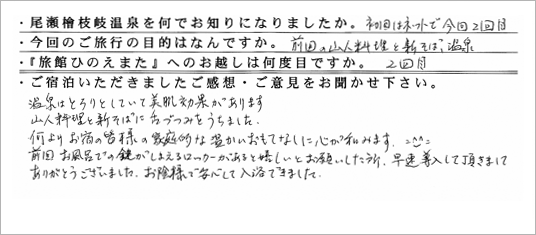 ・尾瀬檜枝岐温泉を何でお知りになりましたか。 初回はネットで今回2回目
・今回のご旅行の目的はなんですか。 前回の山人料理と新そば、温泉
・『旅館ひのえまた』へのお越しは何度目ですか。 2回目
・ご宿泊いただきましたご感想・ご意見をお聞かせ下さい。
温泉はとろりとしていて美肌効果があります
山人料理と新そばに舌づつみをうちました。
何よりお宿の皆様の家庭的な温かいおもてなしに心が和みます。
前回お風呂での鍵がしまえるロッカーがあると嬉しいとお願いした所、早速導入して頂きまして
ありがとうございました。お陰様で安心して入浴できました。